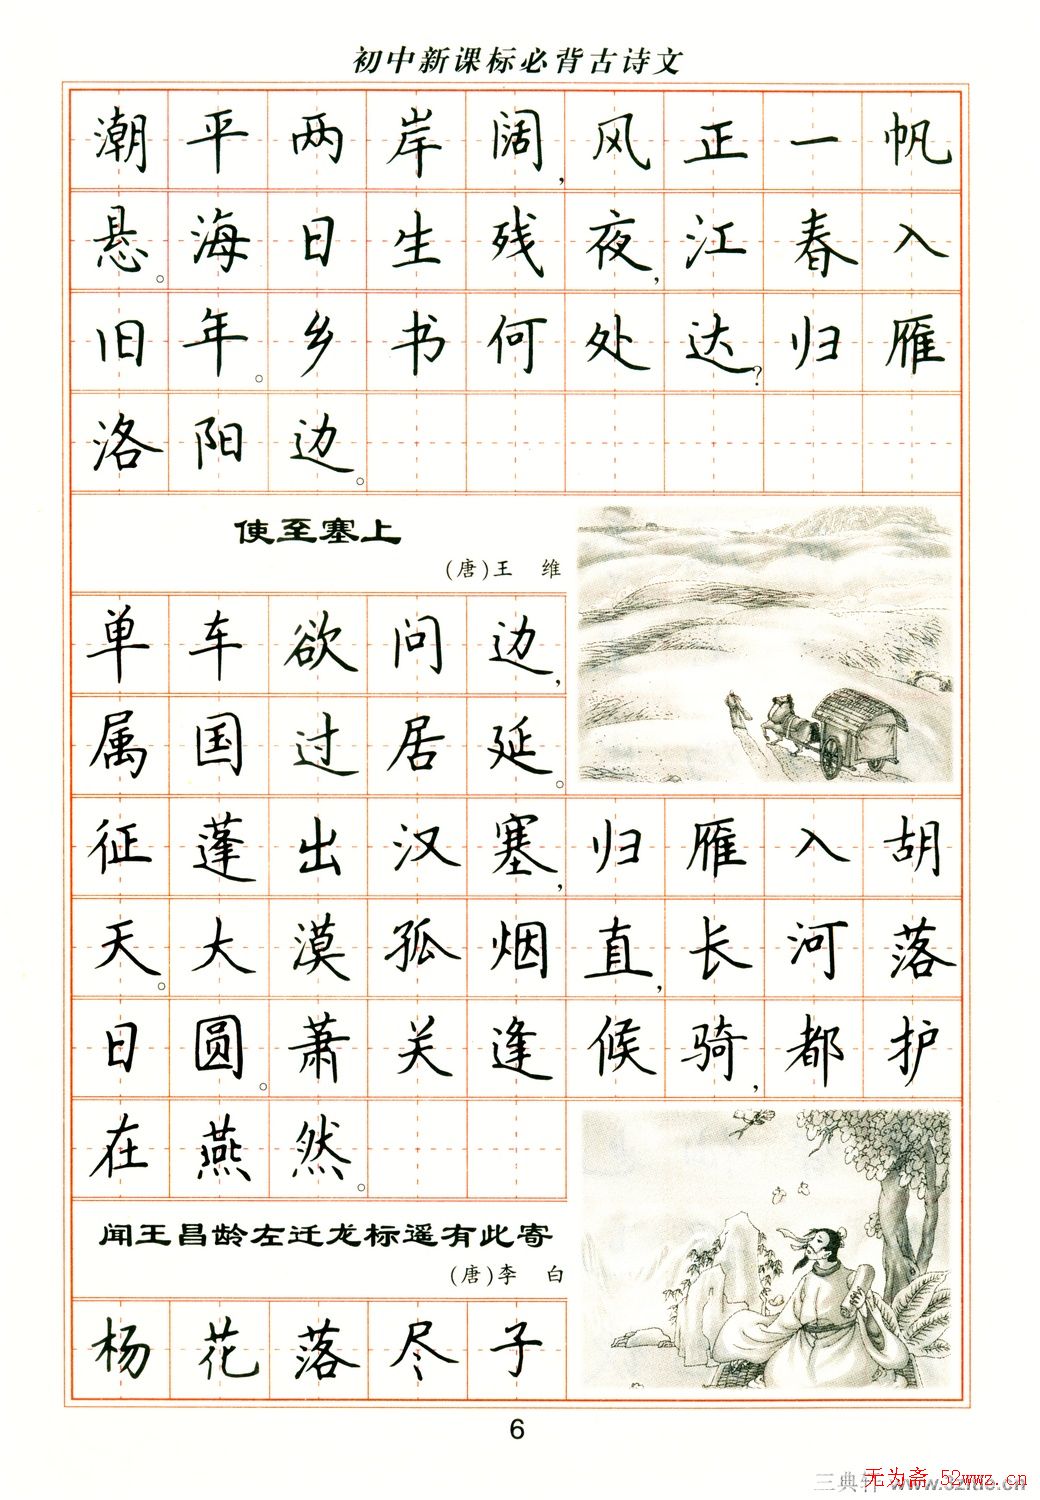 初中新课标必背古诗文
潮平两岸阔,风正一帆
悬。海日生残夜,江春入
旧年。乡书何处达?归雁
洛阳边。
使至塞上
(唐)王 维
单车欲问边,
属国过居延。
征蓬出汉塞,归雁入胡
天。大漠孤烟直,长河落
日圆。萧关逢候骑,都护
在燕然。
闻王昌龄左迁龙标遥有此寄
(唐)李 白
杨花落尽子
6
三典轩 www.52ttc.cn
无为斋.52wwz.cn